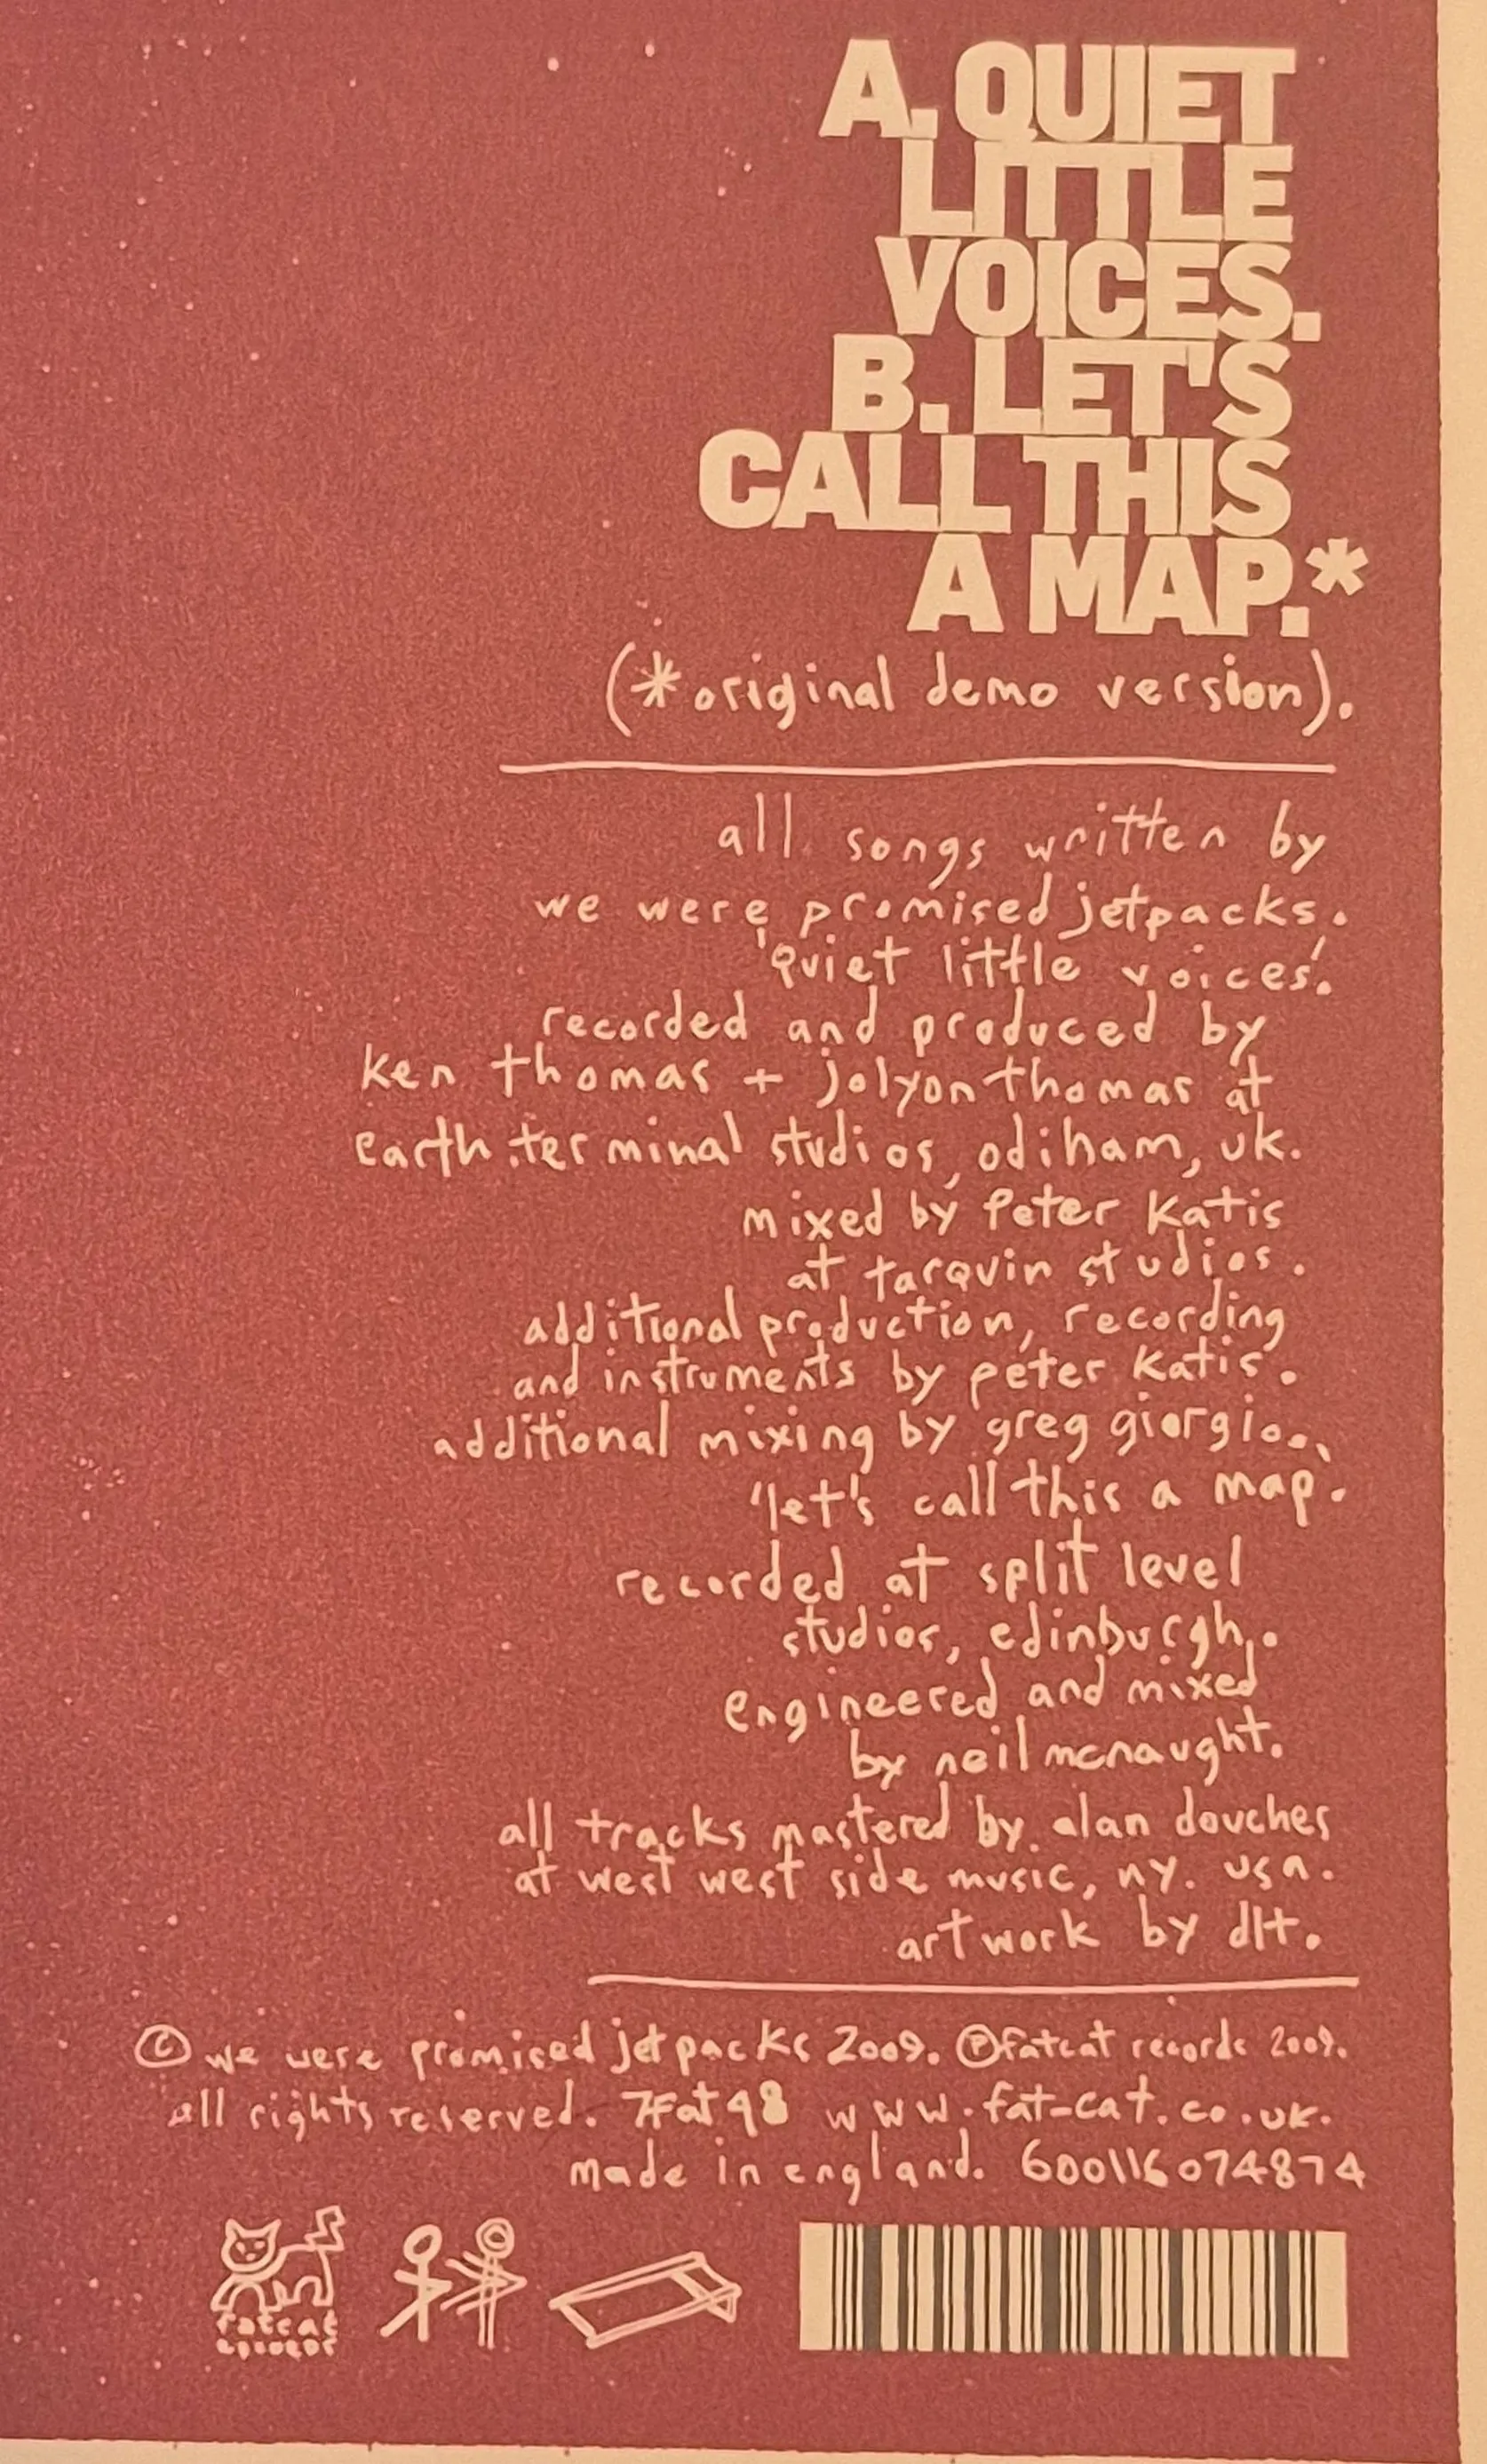 A. QUIET
LITTLE
VOICES.
B. LET'S
CALL THIS
A MAP.*
(*original demo version).
all songs written by
we were promised jetpacks.
'quiet little voices'.
recorded and produced by
ken thomas + jolyon thomas at
earth terminal studios, odiham, uk.
mixed by peter katis
at tarquin studios.
additional production, recording
and instruments by peter katis.
additional mixing by greg giorgio.
'let's call this a map'.
recorded at split level
studios, edinburgh.
engineered and mixed
by neil mcnaught.
all tracks mastered by alan douches
at west west side music, ny. usa.
artwork by dlt.
© we were promised jetpacks 2009. ℗ fatcat records 2009.
all rights reserved. 7Fat98 www.fat-cat.co.uk.
made in england. 600116074874
fatcat
records